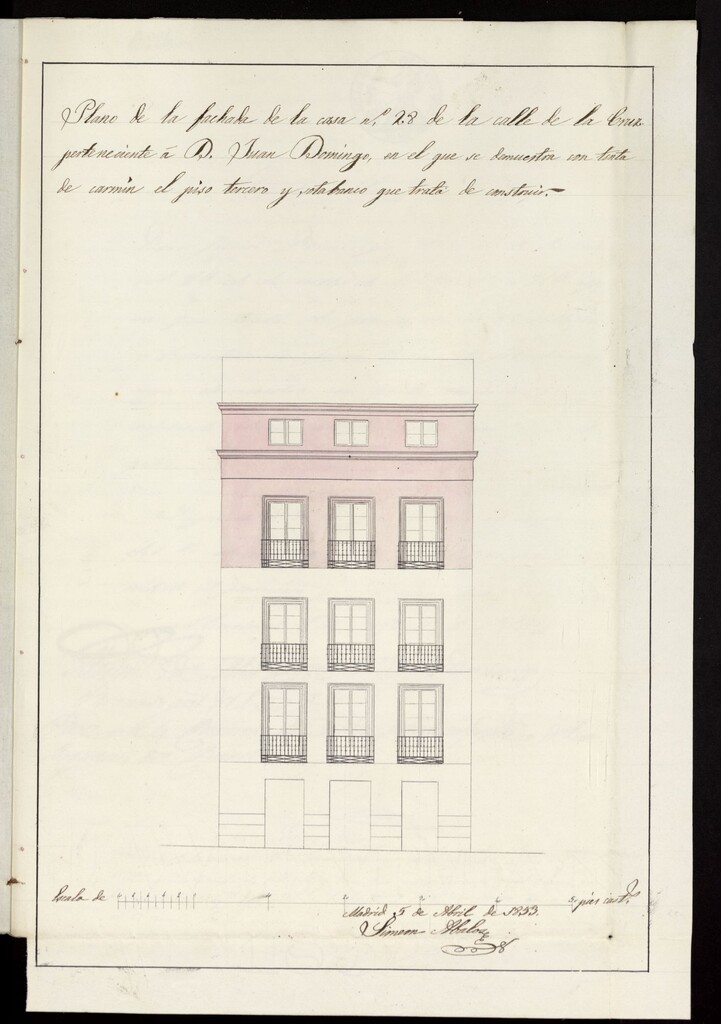 Plano de la fachada de la casa n.º 28 de la calle de la Cruz
perteneciente á D. Juan Domingo, en el que se demuestra con tinta
de carmin el piso tercero y sotabanco que trata de construir.
Escala de pies cast.s
Madrid 5 de Abril de 1853.
Simeon Abalos